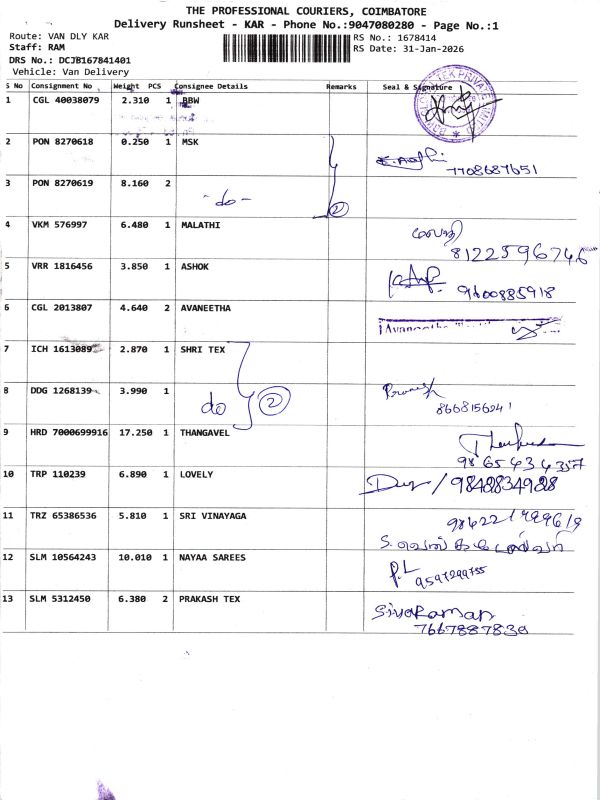 THE PROFESSIONAL COURIERS, COIMBATORE
Delivery Runsheet - KAR - Phone No.:9047080280 - Page No.:1
Route: VAN DLY KAR RS No.: 1678414
Staff: RAM RS Date: 31-Jan-2026
DRS No.: DCJB167841401
Vehicle: Van Delivery
S No Consignment No Weight PCS Consignee Details Remarks Seal & Signature
1 CGL 40038079 2.310 1 BBW
2 PON 8270618 0.250 1 MSK
7708687651
3 PON 8270619 8.160 2
-do- 2
4 VKM 576997 6.480 1 MALATHI
8122596746
5 VRR 1816456 3.850 1 ASHOK
9600885918
6 CGL 2013807 4.640 2 AVANEETHA
Avaneetha
7 ICH 1613089 2.870 1 SHRI TEX
8 DDG 1268139 3.990 1
do 2
8668156241
9 HRD 7000699916 17.250 1 THANGAVEL
9865434357
10 TRP 110239 6.890 1 LOVELY
11 TRZ 65386536 5.810 1 SRI VINAYAGA
12 SLM 10564243 10.010 1 NAYAA SAREES
P.L
9597299755
13 SLM 5312450 6.380 2 PRAKASH TEX
Sivaraman
7667887830